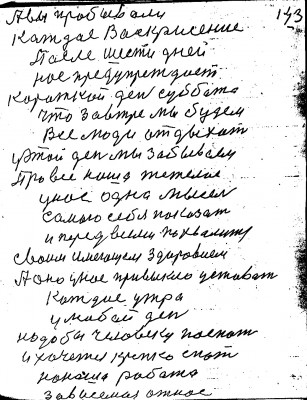 Авы пробывали
143
Каждае Воскрисение
После шести дней
нас предупреждает
Кароткой ден суббота
Что завтре мы будем
Все люди отдыхат
уэтой ден мы забываем
Про все наша тежелае
унас одна мысел
самаго себя показат
и перед всеми пахвалитц
своим имеющем здоровием
Аано унас привыкло устават
Каждае утра
улюбой ден
надобы человеку поспат
и хочетца крепко спат
нонаша работа
зависемая отнас